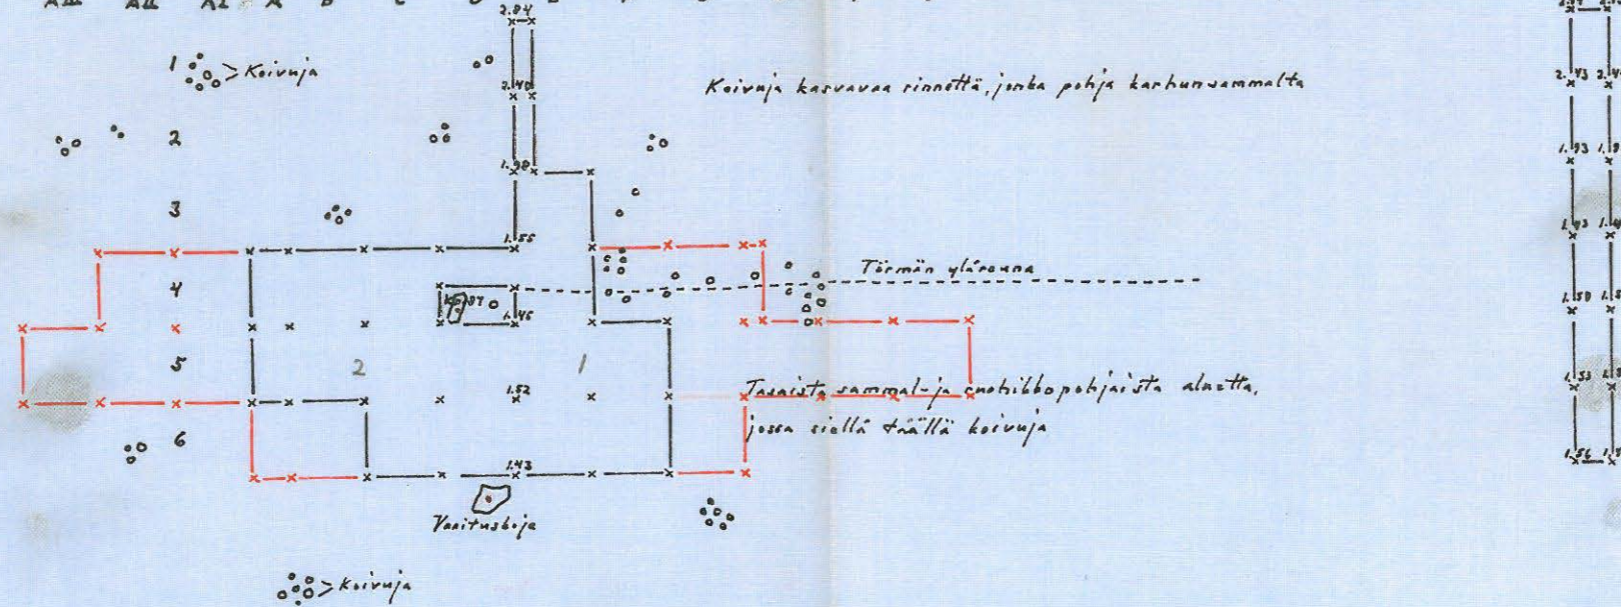 1 > Koivuja
2.84
2.40
Koivuja kasvavaa rinnettä, jonka pohja karhunsammalta
2
1.98
3
1.55
Törmän yläreuna
4
1.45
5
2
1
1.52
Tasaista sammal- ja ruohikkopohjaista aluetta,
jossa siellä täällä koivuja
6
1.43
Vaaituskoja
> Koivuja
2.43
1.93
1.43
1.50
1.53
1.56